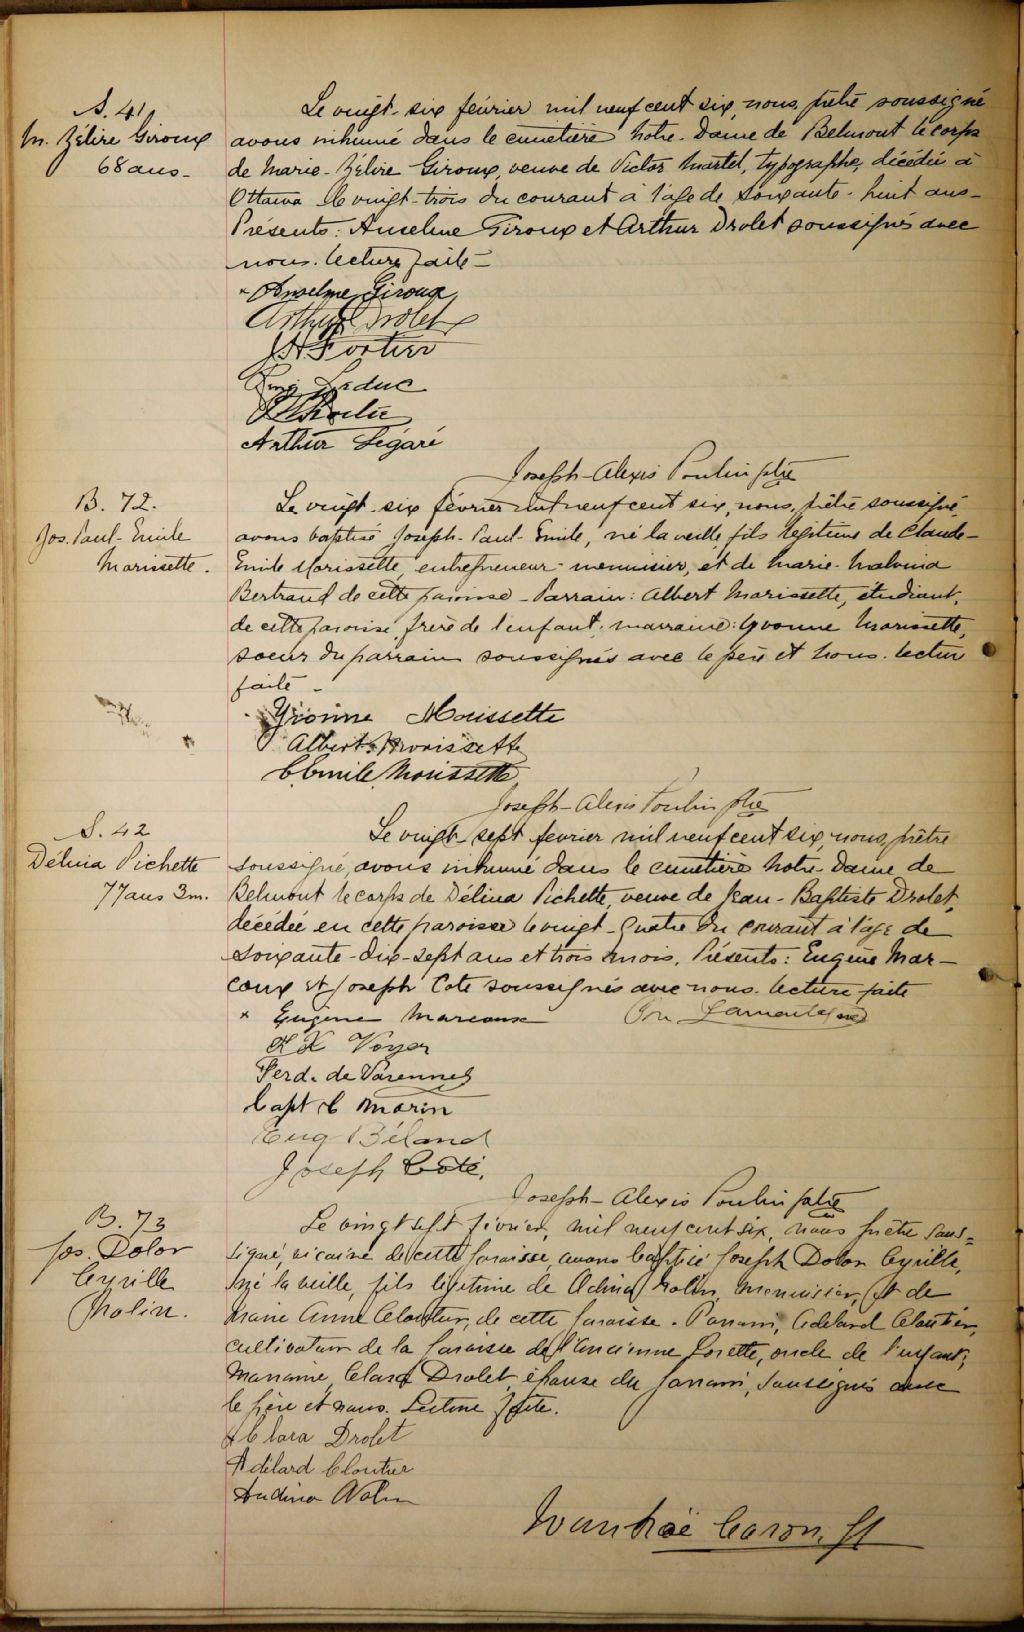 S. 41
M. Zélire Giroux
68 ans_
Le vingt-six février mil neuf cent six, nous, prêtre soussigné
avons inhumé dans le cimetière Notre-Dame de Belmont le corps
de Marie-Zélire Giroux, veuve de Victor Martel, typographe, décédée à
Ottawa le vingt-trois du courant à l'âge de soixante-huit ans_
Présents: Anselme Giroux et Arthur Drolet soussignés avec
nous. Lecture faite_
x Anselme Giroux
Arthur Drolet
J.H. Fortier
Leduc
Arthur Légaré
Joseph-Alexis Poulin ptre
B. 72.
Jos. Paul-Emile
Morissette.
Le vingt-six février mil neuf cent six, nous, prêtre soussigné,
avons baptisé Joseph-Paul-Emile, né la veille, fils légitime de Claude-
Emile Morissette, entrepreneur-menuisier, et de Marie-Malvina
Bertrand de cette paroisse_ Parrain: Albert Morissette, étudiant,
de cette paroisse, frère de l'enfant; marraine: Yvonne Morissette,
soeur du parrain soussignés avec le père et nous. Lecture
faite_
Yvonne Morissette
Albert Morissette
C. Emile Morissette
Joseph-Alexis Poulin ptre
S. 42
Délina Pichette
77 ans 3m.
Le vingt-sept février mil neuf cent six, nous, prêtre
soussigné, avons inhumé dans le cimetière Notre-Dame de
Belmont le corps de Délina Pichette, veuve de Jean-Baptiste Drolet,
décédée en cette paroisse le vingt-quatre du courant à l'âge de
soixante-dix-sept ans et trois mois. Présents: Eugène Mar-
coux et Joseph Cote soussignés avec nous. Lecture faite
x Eugène Marcoux
Lamontagne
Voyer
Ferd. de Varennes
Capt C Morin
Eug Béland
Joseph Côté.
Joseph-Alexis Poulin ptre
B. 73
Jos. Dolor
Cyrille
Nolin.
Le vingt sept février, mil neuf cent six, nous prêtre sous=
signé, vicaire de cette paroisse, avons baptisé Joseph Dolor Cyrille,
né la veille, fils légitime de Adina Nolin, menuisier, et de
Marie Anne Cloutier, de cette paroisse. Parrain, Adelard Cloutier,
cultivateur de la paroisse de l'Ancienne Lorette, oncle de l'enfant;
Marraine, Clara Drolet, épouse du parrain, soussignés avec
le père et nous. Lecture faite.
x Clara Drolet
Adélard Cloutier
Audina Nolin
Ivanhoë Caron, ptre